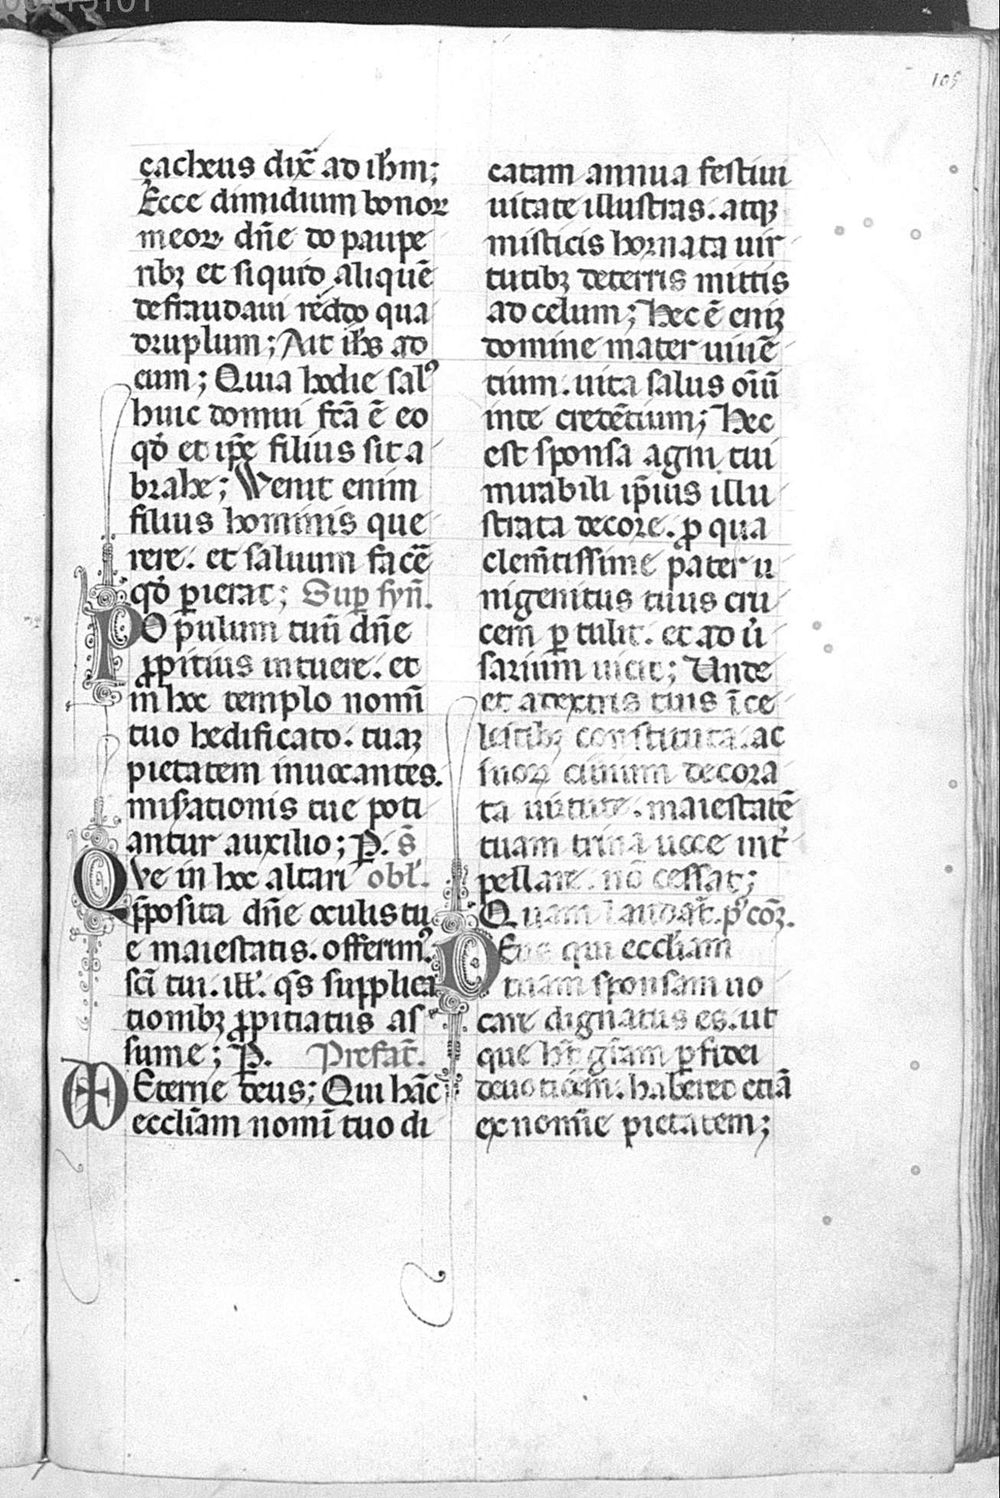 109
çacheus dix̄ ad ih̄m;
Ecce dimidium bonoꝝ
meoꝝ dn̄e do paupe
ribꝫ et siquid aliquē
defraudaui reddo qua
druplum; Ait ih̄s ad
eum; Quia hodie salꝰ
huic domui fc̄a ē eo
qd̄ et ip̄e filius sit a
brahe; Venit enim
filius hominis que
rere. et saluum facē
qd̄ ꝑierat; Suꝑ syn̄.
POpulum tuū dn̄e
ꝓpitius intuere. et
in hoc templo nomī
tuo hedificato. tuaꝫ
pietatem inuocantes.
mis̄ationis tue poti
antur auxilio; P. S̄
QVe in hoc altari obl̄.
ꝓposita dn̄e oculis tu
e maiestatis. offerimꝰ
sc̄i tui. ill̄. qs̄ supplica
tionibꝫ ꝓpitiatus as
sume; P. Prefat̄.
Eterne deus; Qui hāc
eccl̄iam nomī tuo di
catam annua festiui
uitate illustras. atqꝫ
misticis hornata uir
tutibꝫ deterris mittis
ad celum; Hec ē eniꝫ
domine mater uiuē
tium. uita salus oīū
inte credētium; Hec
est sponsa agni tui
mirabili ip̄ius illu
strata decore. ꝓ qua
clem̄tissime pater u
nigenitus tuus cru
cem ꝑtulit. et ad ūi
sarium uicit; Unde
et adextris tuis ī ce
lestibꝫ constituta. ac
suoꝝ ciuium decora
ta uirtute. maiestatē
tuam trina uoce int̄
pellare. nō cessat;
Quam laudāt. pꝰ cōꝫ.
DEus qui eccl̄iam
tuam sponsam uo
care dignatus es. ut
que h̄t gr̄am ꝑ fidei
deuotiōem. haberet etiā
ex nomīe pietatem;